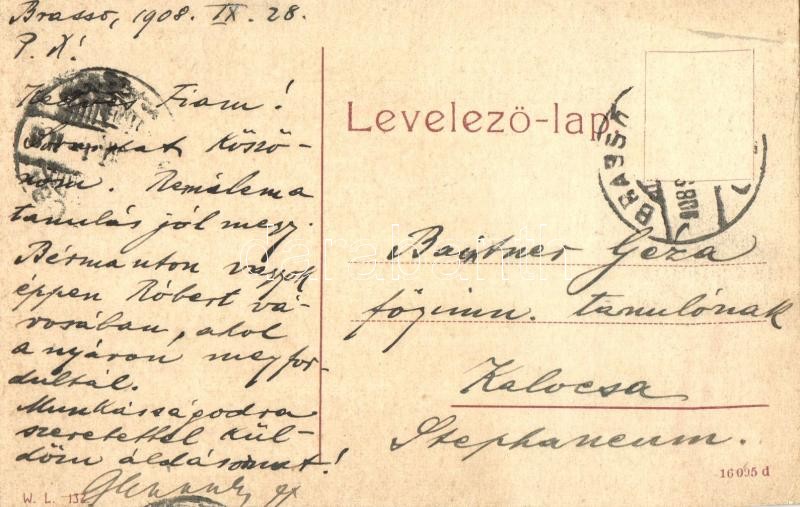 Brassó, 1908. IX. 28.
P. X!
Kedves Fiam!
köszö-
nöm. Remélem a
tanulás jól megy.
Bérmauton vagyok
éppen Róbert vá-
rosában, ahol
a nyáron megfor-
dultál.
Munkásságodra
szeretettel kül-
döm áldásomat!
W. L. 132
Levelező-lap
BRASSÓ
Géza
főgimn. tanulónak
Kalocsa
Stephaneum.
16 095 d